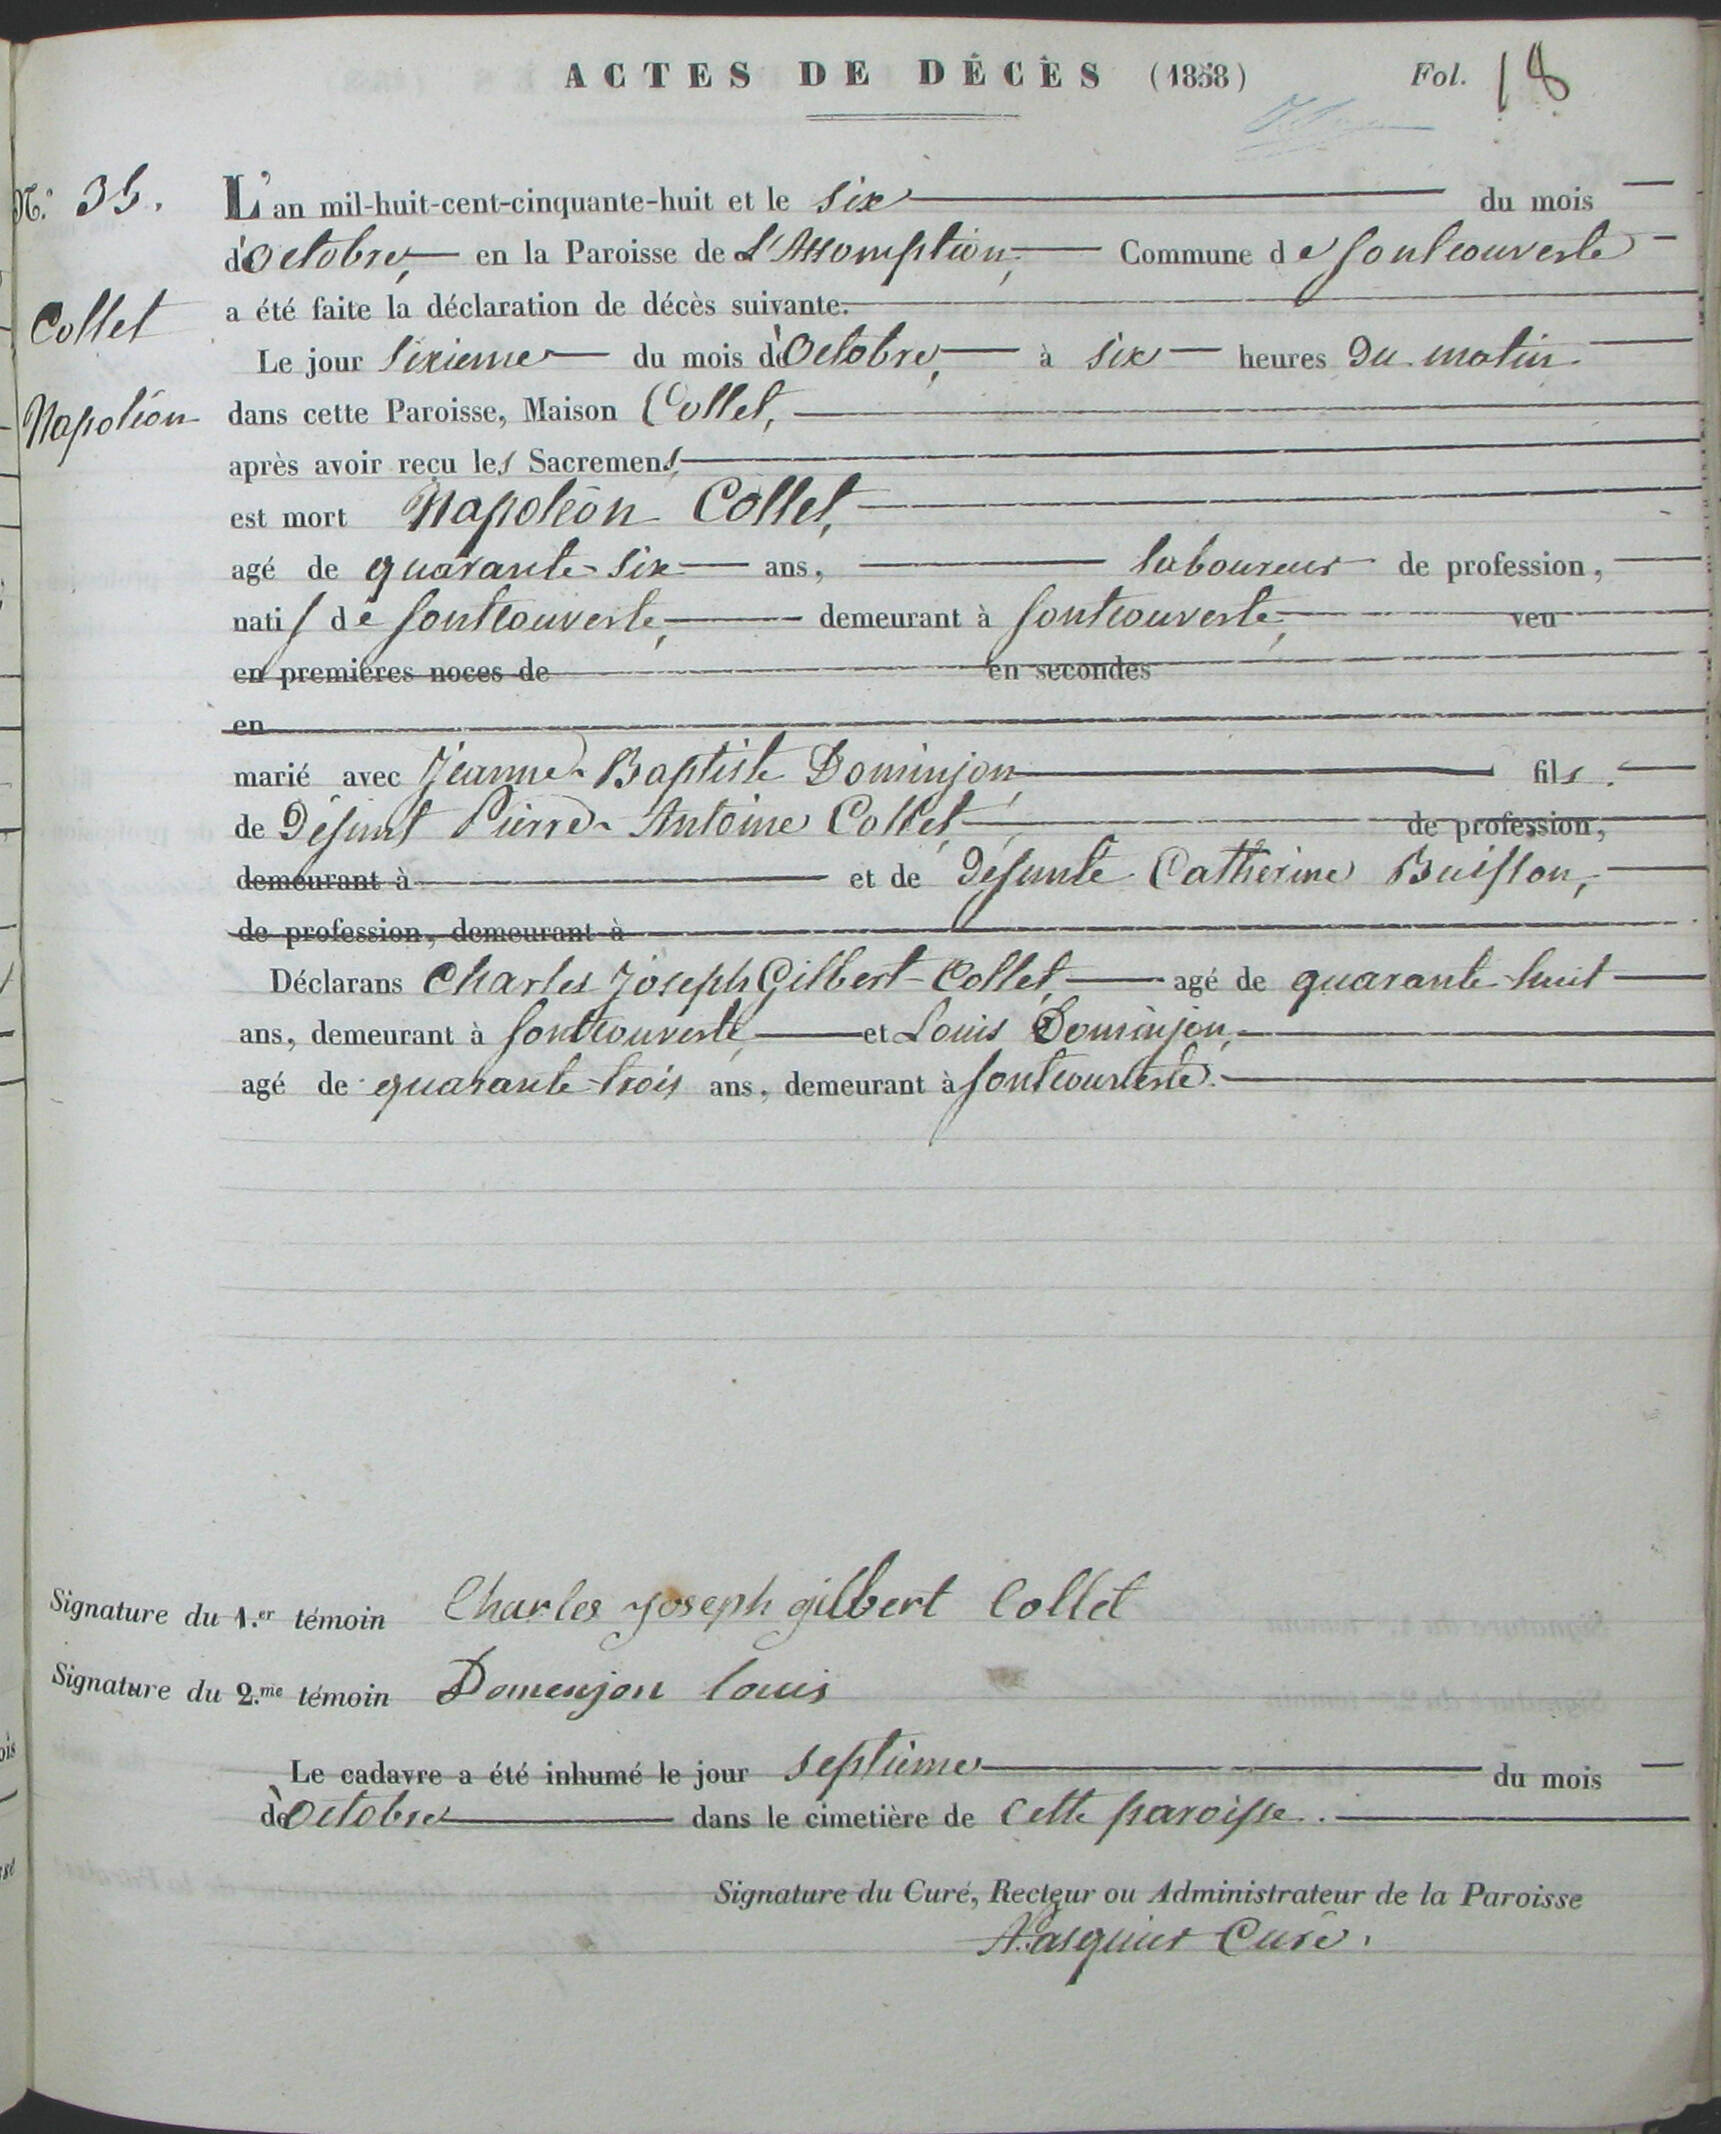 ACTES DE DÉCÈS (1858) Fol. 18
N.° 35.
L'an mil-huit-cent-cinquante-huit et le six du mois
d'octobre, en la Paroisse de L'Assomption, Commune de fontcouverte
Collet
a été faite la déclaration de décès suivante.
Le jour sixieme du mois d'Octobre, à six heures du matin
Napoléon
dans cette Paroisse, Maison Collet,
après avoir reçu les Sacremens,
est mort Napoléon Collet,
agé de quarante-six ans, laboureur de profession,
natif de fontcouverte, demeurant à fontcouverte, veu
en premières noces de en secondes
en
marié avec Jeanne-Baptiste Dominjon, fils.
de Défunt Pierre-Antoine Collet, de profession,
demeurant à et de défunte Catherine Buisson,
de profession, demeurant à
Déclarans Charles Joseph Gilbert Collet agé de quarante-huit
ans, demeurant à fontcouverte, et Louis Dominjon,
agé de quarante-trois ans, demeurant à fontcouverte.
Signature du 1.er témoin Charles joseph gilbert Collet
Signature du 2.me témoin Domenjon louis
Le cadavre a été inhumé le jour septieme du mois
d'octobre dans le cimetière de cette paroisse.
Signature du Curé, Recteur ou Administrateur de la Paroisse
Pasquier Curé.